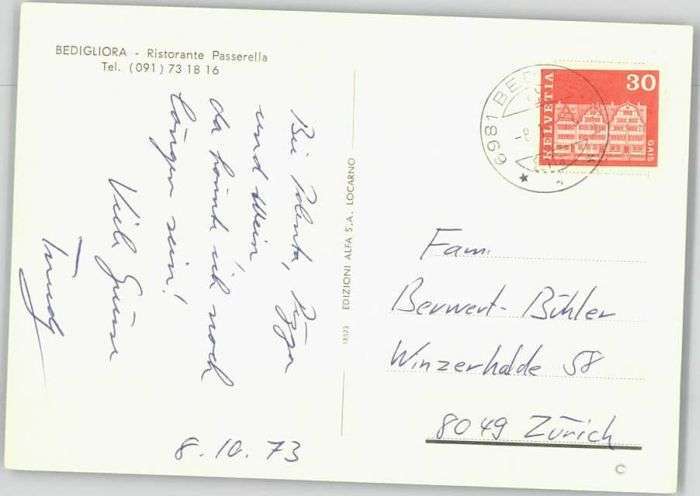 BEDIGLIORA - Ristorante Passerella
Tel. (091) 73 18 16
Bei Polenta, Pizza
und Wein,
da könnt ich noch
länger sein!
Viele Grüsse
Trudy
8.10.73
18523 EDIZIONI ALFA S.A. LOCARNO
6981 BE
HELVETIA
30
GAIS
Fam.
Berwert-Bühler
Winzerhalde 58
8049 Zürich
C